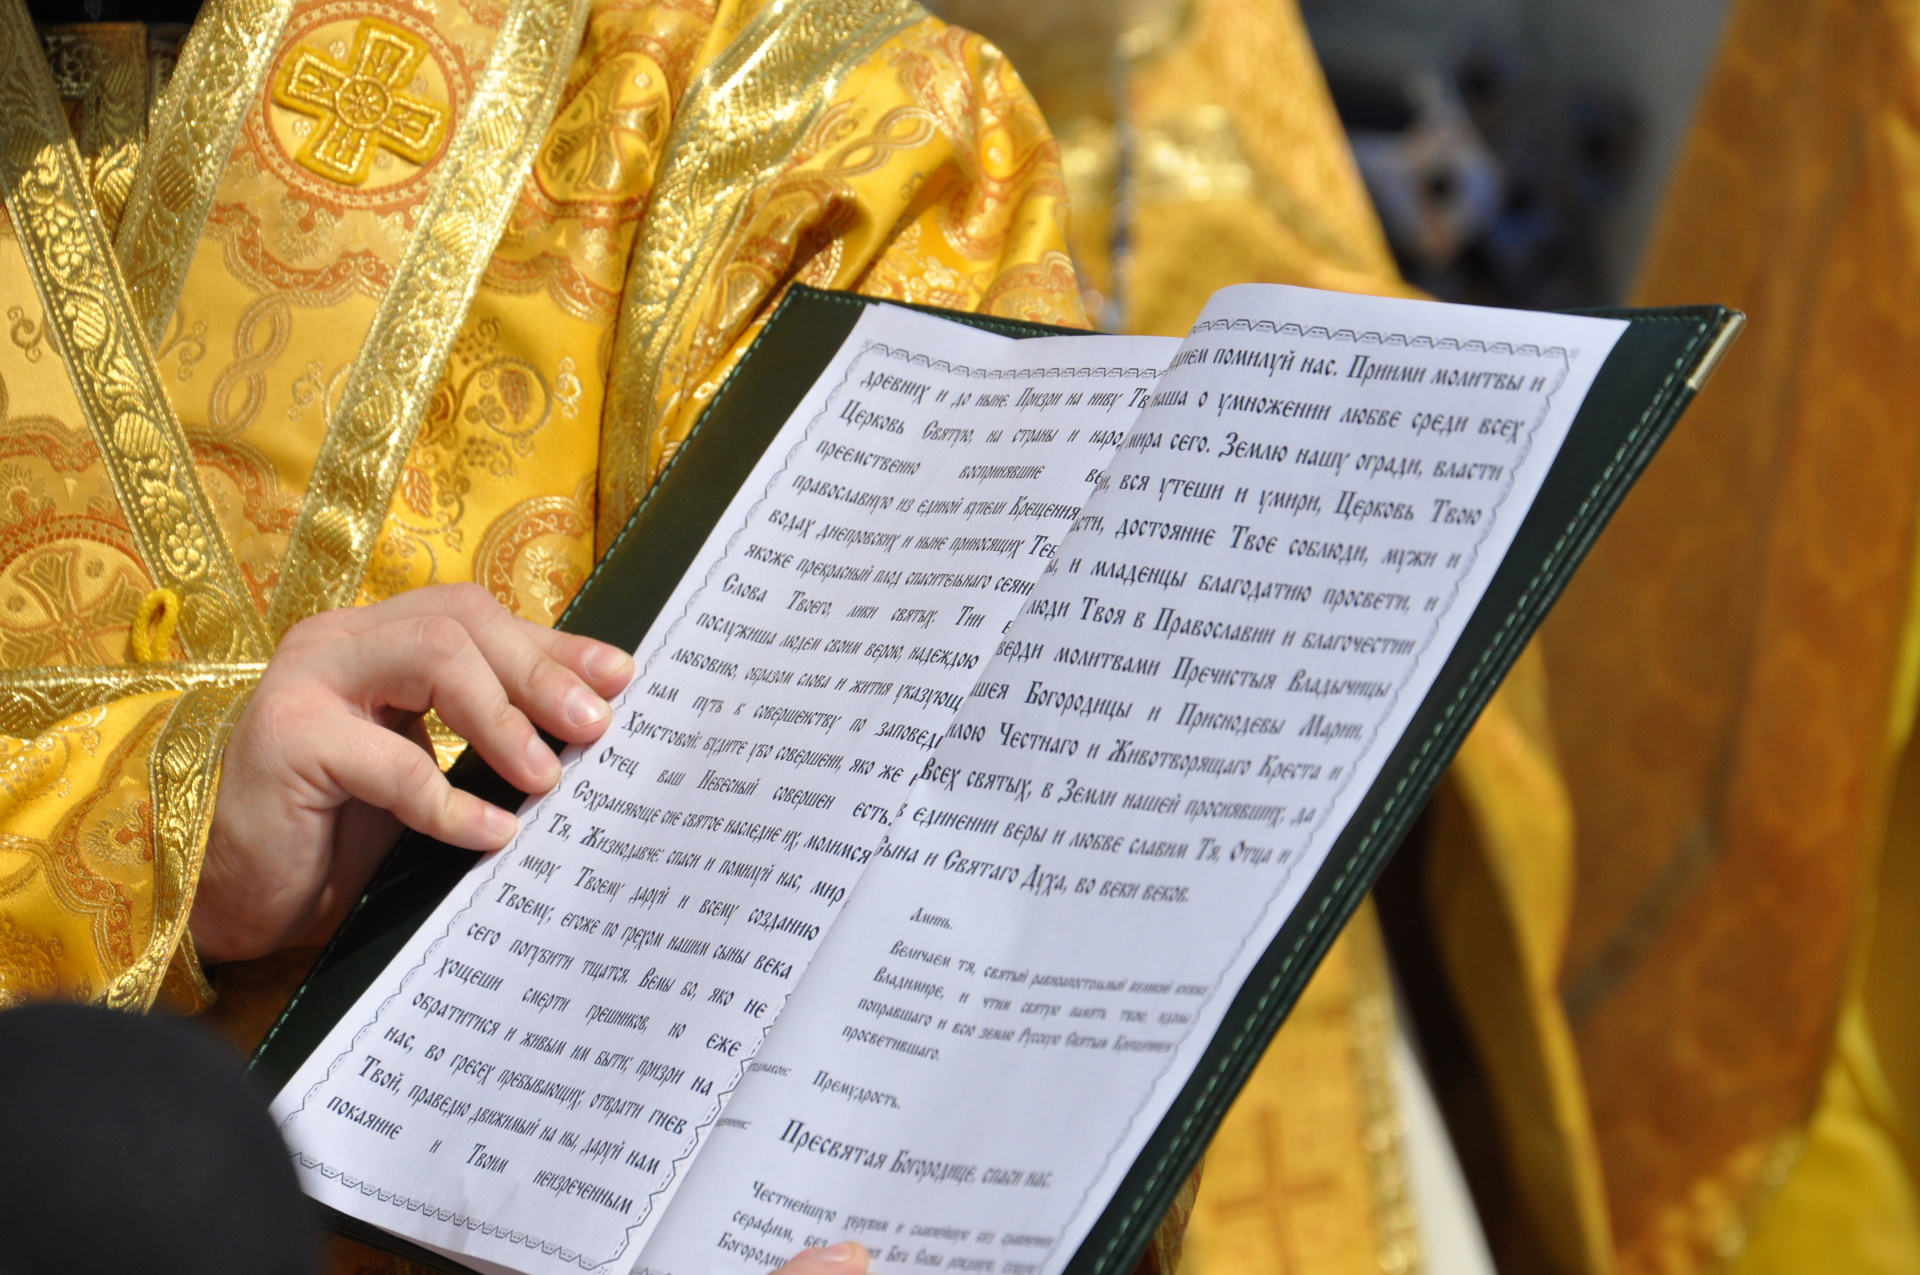 древних и до ныне. Призри на ниву Тв
Церковь Святую, на страны и наро
преемственно восприявшие ве
православную из единой купели Крещения
водах днепровских и ныне приносящих Теб
якоже прекрасный плод спасительнаго сеяни
Слова Твоего, лики святых. Тии в
послужиша людем своим верою, надеждою
любовию, образом слова и жития указующ
нам путь к совершенству по заповеди
Христовой: будите убо совершени, яко же
Отец ваш Небесный совершен есть.
Сохраняюще сие святое наследие их, молимся
Тя, Жизнодавче: спаси и помилуй нас, мир
миру Твоему даруй и всему созданию
Твоему, егоже по грехом нашим сыны века
сего погубити тщатся. Вемы бо, яко не
хощеши смерти грешников, но еже
обратитися и живым им быти; призри на
нас, во гресех пребывающих, отврати гнев
Твой, праведно движимый на ны, даруй нам
покаяние и Твоим неизреченным
помилуй нас. Приими молитвы и
наша о умножении любве среди всех
мира сего. Землю нашу огради, власти
вся утеши и умири, Церковь Твою
достояние Твое соблюди, мужи и
и младенцы благодатию просвети, и
люди Твоя в Православии и благочестии
верди молитвами Пречистыя Владычицы
шея Богородицы и Приснодевы Марии,
илою Честнаго и Животворящаго Креста и
всех святых, в Земли нашей просиявших, да
в единении веры и любве славим Тя, Отца и
Сына и Святаго Духа, во веки веков.
Аминь.
Величаем тя, святый равноапостольный великий княже
Владимире, и чтим святую память твою, идолы
поправшаго и всю землю Русскую Святым Крещением
просветившаго.
Премудрость.
Пресвятая Богородице, спаси нас.
Честнейшую херувим и славнейшую без сравнения
серафим, без Бога Слова рождшую,
Богородиц